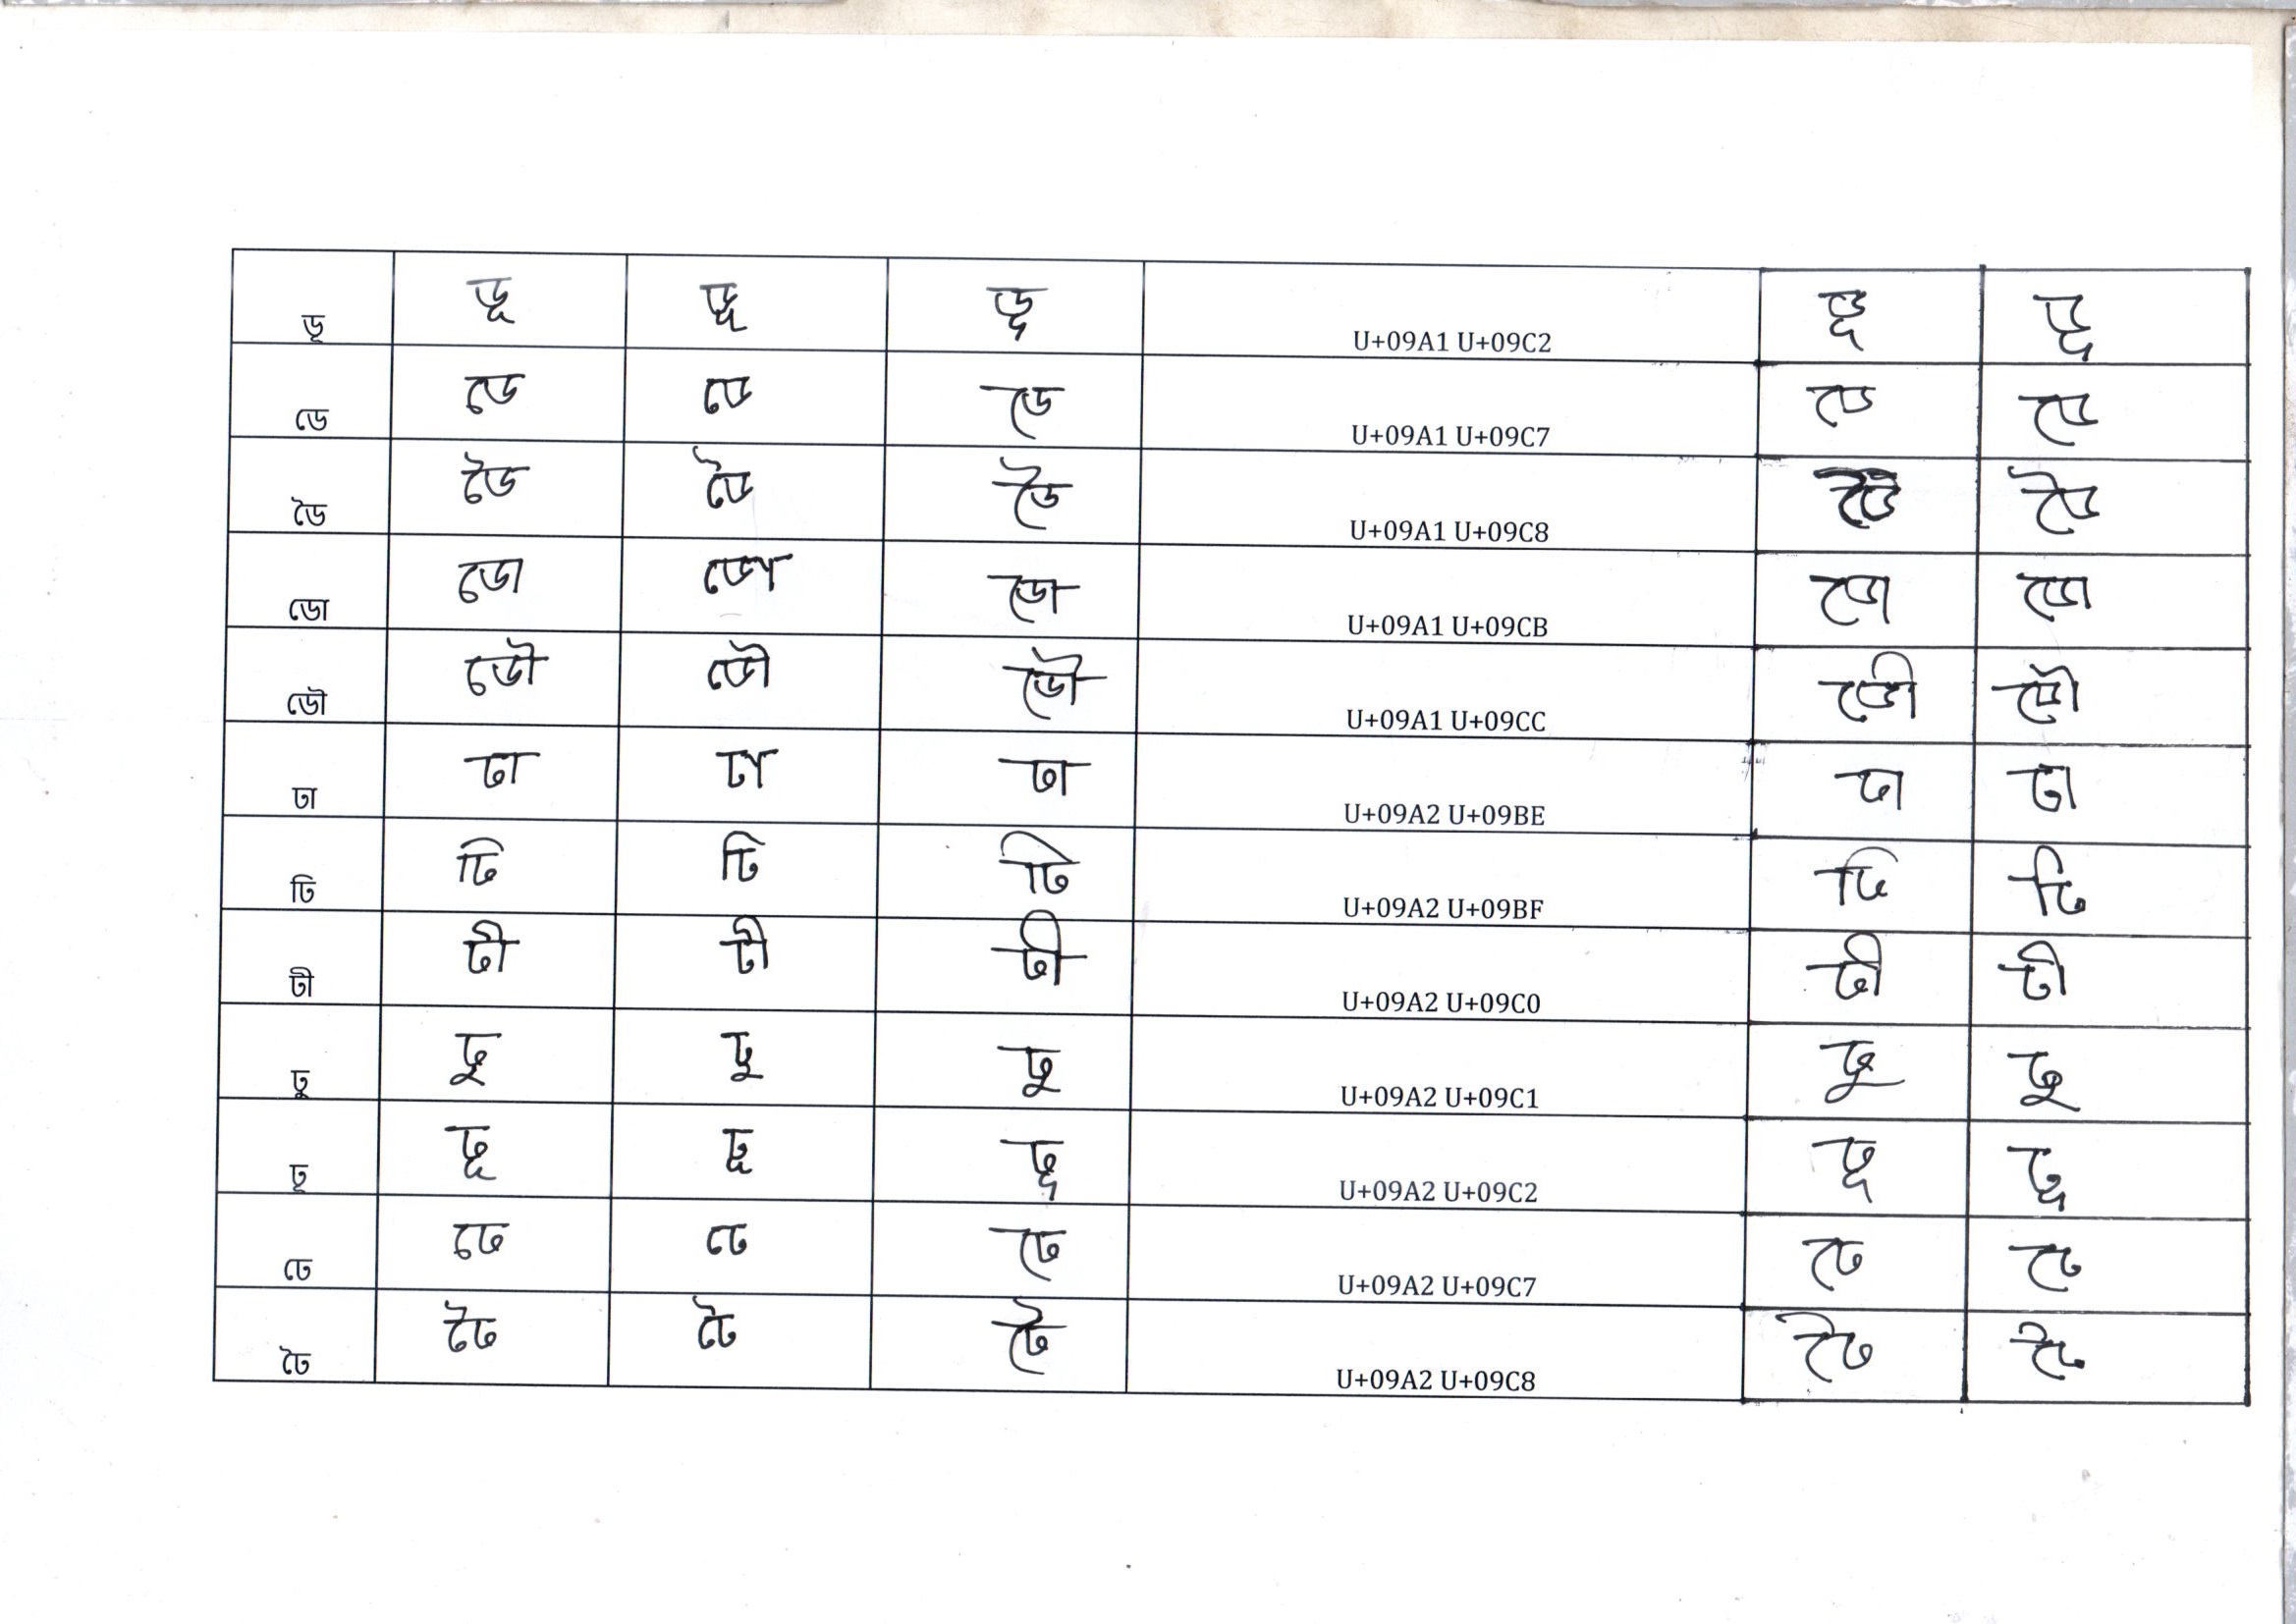 ডূ ডূ ডূ ডূ U+09A1 U+09C2 ডূ ডূ
ডে ডে ডে ডে U+09A1 U+09C7 ডে ডে
ডৈ ডৈ ডৈ ডৈ U+09A1 U+09C8 ডৈ ডৈ
ডো ডো ডো ডো U+09A1 U+09CB ডো ডো
ডৌ ডৌ ডৌ ডৌ U+09A1 U+09CC ডৌ ডৌ
ঢা ঢা ঢা ঢা U+09A2 U+09BE ঢা ঢা
ঢি ঢি ঢি ঢি U+09A2 U+09BF ঢি ঢি
ঢী ঢী ঢী ঢী U+09A2 U+09C0 ঢী ঢী
ঢু ঢু ঢু ঢু U+09A2 U+09C1 ঢু ঢু
ঢূ ঢূ ঢূ ঢূ U+09A2 U+09C2 ঢূ ঢূ
ঢে ঢে ঢে ঢে U+09A2 U+09C7 ঢে ঢে
ঢৈ ঢৈ ঢৈ ঢৈ U+09A2 U+09C8 ঢৈ ঢৈ